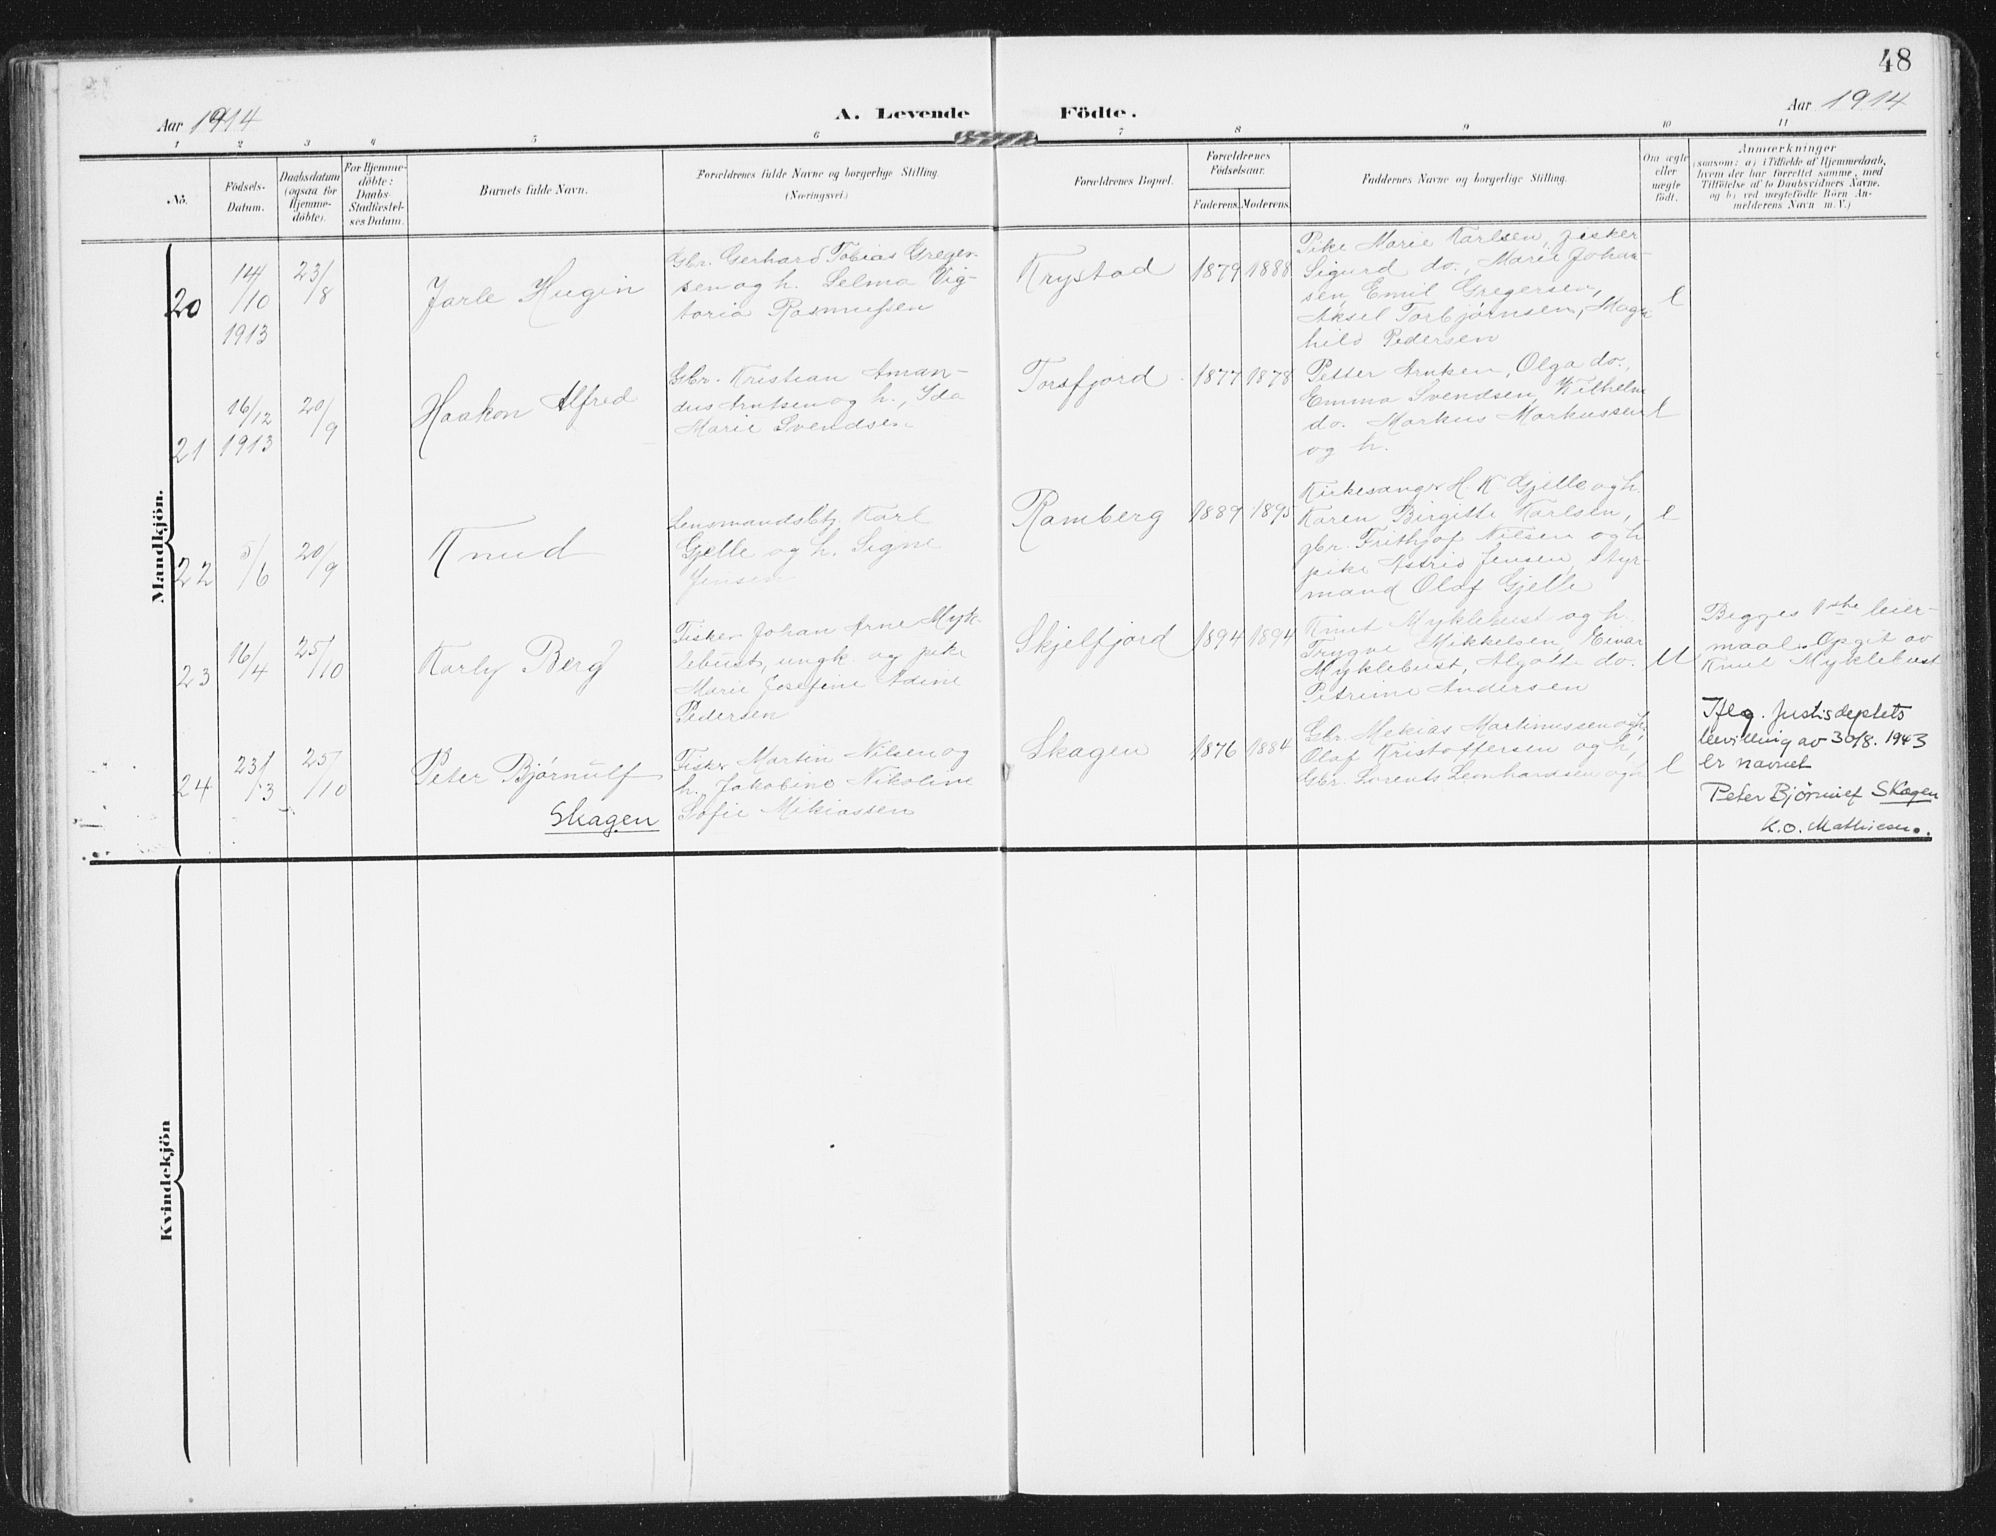 48
Aar 1914
A. Levende Födte.
Aar 1914
1 2 3 4 5 6 7 8 9 10 11
No.
Födsels-
Datum.
Daabsdatum
(ogsaa for
Hjemme-
döbte).
For Hjemme-
döbte:
Daabs-
Stadfæstel-
ses Datum.
Barnets fulde Navn.
Forældrenes fulde Navne og borgerlige Stilling.
(Næringsvei.)
Forældrenes Bopæl.
Forældrenes
Födselsaar.
Faderens. Moderens.
Faddernes Navne og borgerlige Stilling.
Om ægte
eller
uægte
født.
Anmærkninger
(saasom: a) i Tilfælde af Hjemmedaab,
hvem der har forrettet samme, med
Tilföielse af to Daabsvidners Navne,
og b) ved uægtefödte Börn An-
melderens Navn m. V.)
Mandkjön.
20
14/10
1913
23/8
Jarle Hugin
Gbr. Gerhard Tobias Greger-
sen og h. Selma Vig-
toria Rasmussen
Krystad
1879 1888
Pike Marie Karlsen, fisker
Sigurd do., Marie Johan-
sen, Emil Gregersen,
Aksel Torbjørnsen, Magn-
hild Pedersen
21
16/12
1913
20/9
Haakon Alfred
Gbr. Kristian Aman-
dus Arntsen og h., Ida
Marie Svendsen
Torsfjord
1877 1878
Petter Arntsen, Olga do.,
Emma Svendsen, Wilhelm
do. Markus Markussen
og h.
22
5/6
20/9
Knud
Lensmandsbtj. Karl
Gjelle og h. Signe
Jensen
Ramberg
1889 1895
Kirkesanger H. K. Gjelle og h.
Karen Birgitte Karlsen,
gbr. Frithjof Nilsen og h
pike Astrid Jensen, styr-
mand Olaf Gjelle
23
16/4
25/10
Karly Berg
Fisker Johan Arne Myk-
lebust, ungk. og pike
Marie Josefine Adine
Pedersen
Skjelfjord
1894 1894
Knut Myklebust og h.
Trygve Mikkelsen, Einar
Myklebust, do.
Petrine Andersen
U
Begges 1ste leier-
maal. Opgit av
Knut Myklebust
24
23/3
25/10
Peter Bjørnulf
Skagen
Fisker Martin Nilsen og
h. Jakobine Nikoline
Sofie Mikiassen
Skagen
1876 1884
Gbr. Mekias Martinussen og h.
Olaf Kristoffersen og h,
Gbr. Lorents Leonhardsen og h
Iflg. Justisdeptets
bevilling av 30/8. 1943
er navnet
Peter Bjørnulf Skagen
K.O. Mathiesen.
Kvindekjön